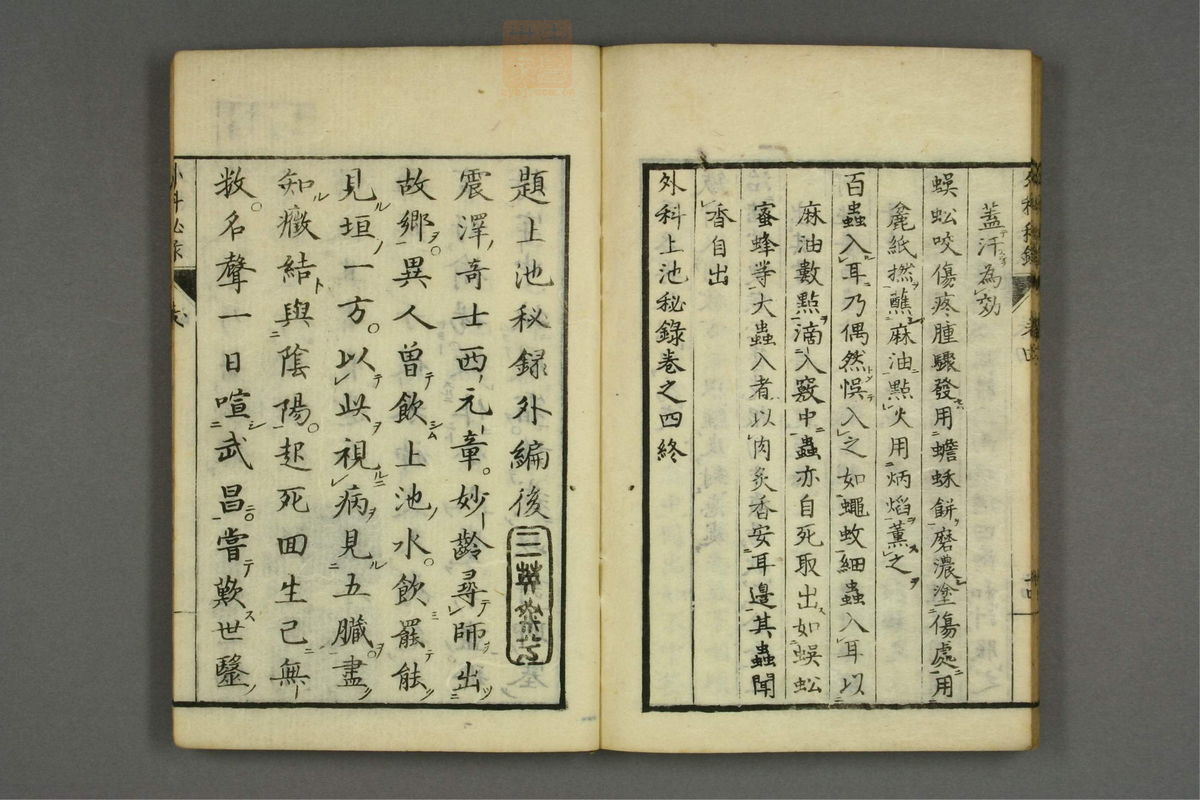 蓋汗為効
蜈蚣咬傷疼腫驟發用蟾蛛餅磨濃塗傷處用
麄紙撚蘸麻油點火用炳焰薰之
百蟲入耳乃偶然悞入之如蠅蚊細蟲入耳以
麻油數點滴入竅中蟲亦自死取出如蜈蚣
蜜蜂等大蟲入者以肉炙香安耳邊其蟲聞
香自出
外科上池秘錄卷之四終
題上池秘録外編後
震澤奇士西元章妙齡尋師出
故鄉異人曾飲上池水飲罷能
見垣一方以此視病見五臓盡
知癥結與陰陽起死回生已無
数名聲一日喧武昌嘗歎世毉